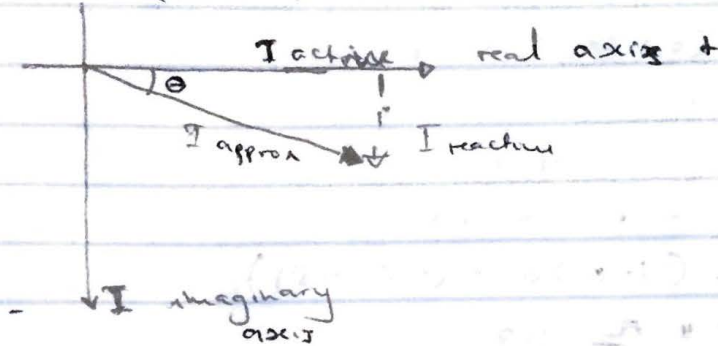 I active real axis +
θ
I approx I reactive
- I imaginary
axis